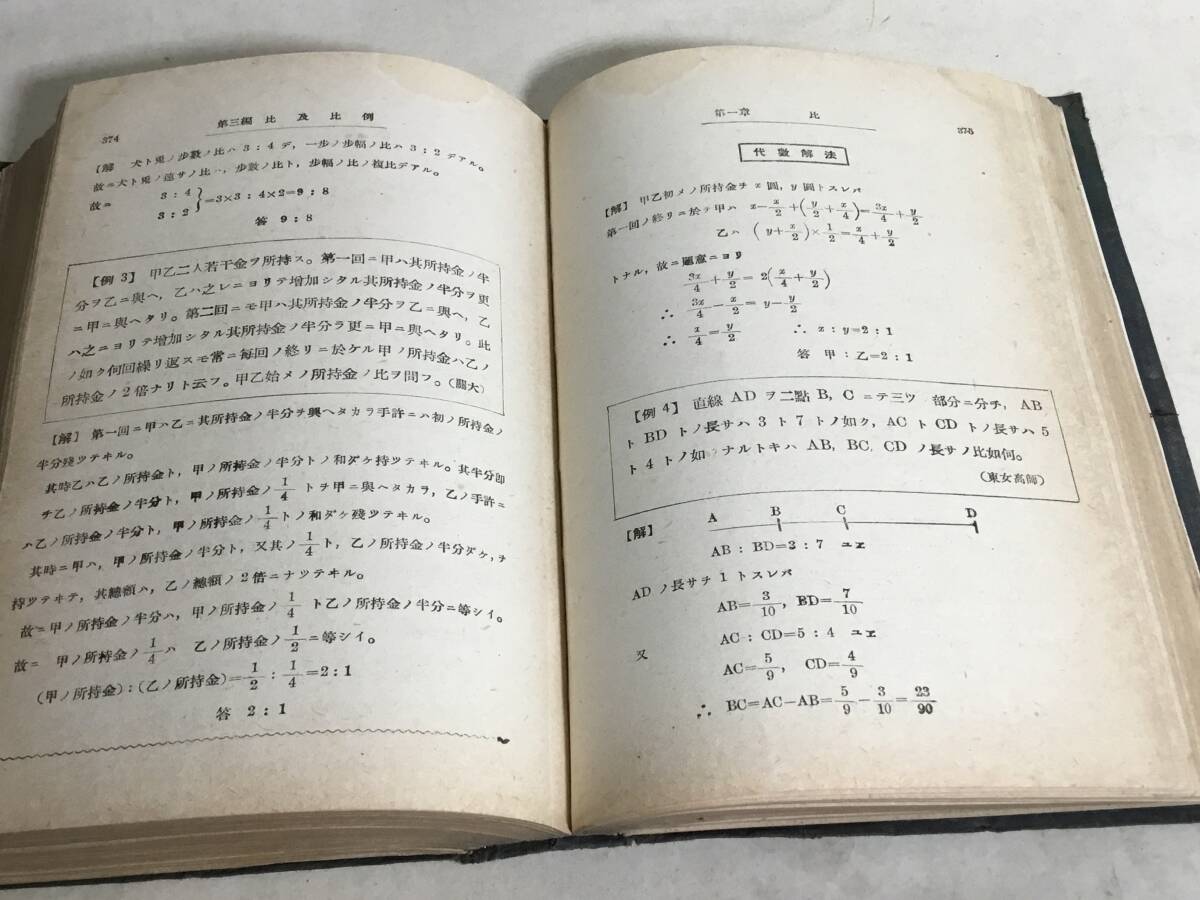 374
第三編 比及比例
【解 犬ト兎ノ步數ノ比ハ 3：4 デ，一步ノ步幅ノ比ハ 3：2 デアル。
故ニ犬ト兎ノ速サノ比ハ，步數ノ比ト，步幅ノ比ノ複比デアル。
故ニ 3：4
3：2 }=3×3：4×2=9：8
答 9：8
【例 3】 甲乙二人若干金ヲ所持ス。第一回ニ甲ハ其所持金ノ半
分ヲ乙ニ與ヘ，乙ハ之レニヨリテ增加シタル其所持金ノ半分ヲ更
ニ甲ニ與ヘタリ。第二回ニモ甲ハ其所持金ノ半分ヲ乙ニ與ヘ，乙
ハ之ニヨリテ增加シタル其所持金ノ半分ラ更ニ甲ニ與ヘタリ。此
ノ如ク何回繰リ返スモ常ニ每回ノ終リニ於ケル甲ノ所持金ハ乙ノ
所持金ノ2倍ナリト云フ。甲乙始メノ所持金ノ比ヲ問フ。(關大)
【解】 第一回ニ甲ハ乙ニ其所持金ノ半分チ興ヘタカラ手許ニハ初ノ所持金ノ
半分殘ツテキル。
其時乙ハ乙ノ所持金ト，甲ノ所持金ノ半分トノ和ダケ持ツテキル。其半分卽
チ乙ノ所持金ノ半分ト，甲ノ所持金ノ 1/4 トチ甲ニ與ヘタカラ，乙ノ手許ニ
ハ乙ノ所持金ノ半分ト，甲ノ所持金ノ 1/4 トノ和ダケ殘ツテキル。
其時ニ甲ハ，甲ノ所持金ノ半分ト，又其ノ 1/4 ト，乙ノ所持金ノ半分ダケ，チ
持ツテキテ，其總額ハ，乙ノ總額ノ2倍ニナツテキル。
故ニ甲ノ所持金ノ半分ハ，甲ノ所持金ノ 1/4 ト乙ノ所持金ノ半分ニ等シイ。
故ニ 甲ノ所持金ノ 1/4 ハ 乙ノ所持金ノ 1/2 ニ等シイ。
(甲ノ所持金)：(乙ノ所持金)= 1/2 ： 1/4 =2：1
答 2：1
第一章 比
375
代數解法
【解】 甲乙初メノ所持金チ x 圓，y 圓トスレバ
第一回ノ終リニ於テ甲ハ x−x/2+(y/2+x/4)=3x/4+y/2
乙ハ (y+x/2)×1/2=x/4+y/2
トナル，故ニ題意ニヨリ
3x/4+y/2=2(x/4+y/2)
∴ 3x/4−x/2=y−y/2
∴ x/4=y/2 ∴ x：y=2：1
答 甲：乙=2：1
【例 4】 直線 AD ヲ二點 B，C ニテ三ツ 部分ニ分チ，AB
ト BD トノ長サハ 3 ト 7 トノ如ク，AC ト CD トノ長サハ 5
ト 4 トノ如シ ナルトキハ AB，BC，CD ノ長サノ比如何。
(東女高師)
【解】 A B C D
AB：BD=3：7 ユエ
AD ノ長サチ 1 トスレバ
AB=3/10，BD=7/10
又 AC：CD=5：4 ユエ
AC=5/9，CD=4/9
∴ BC=AC−AB=5/9−3/10=23/90